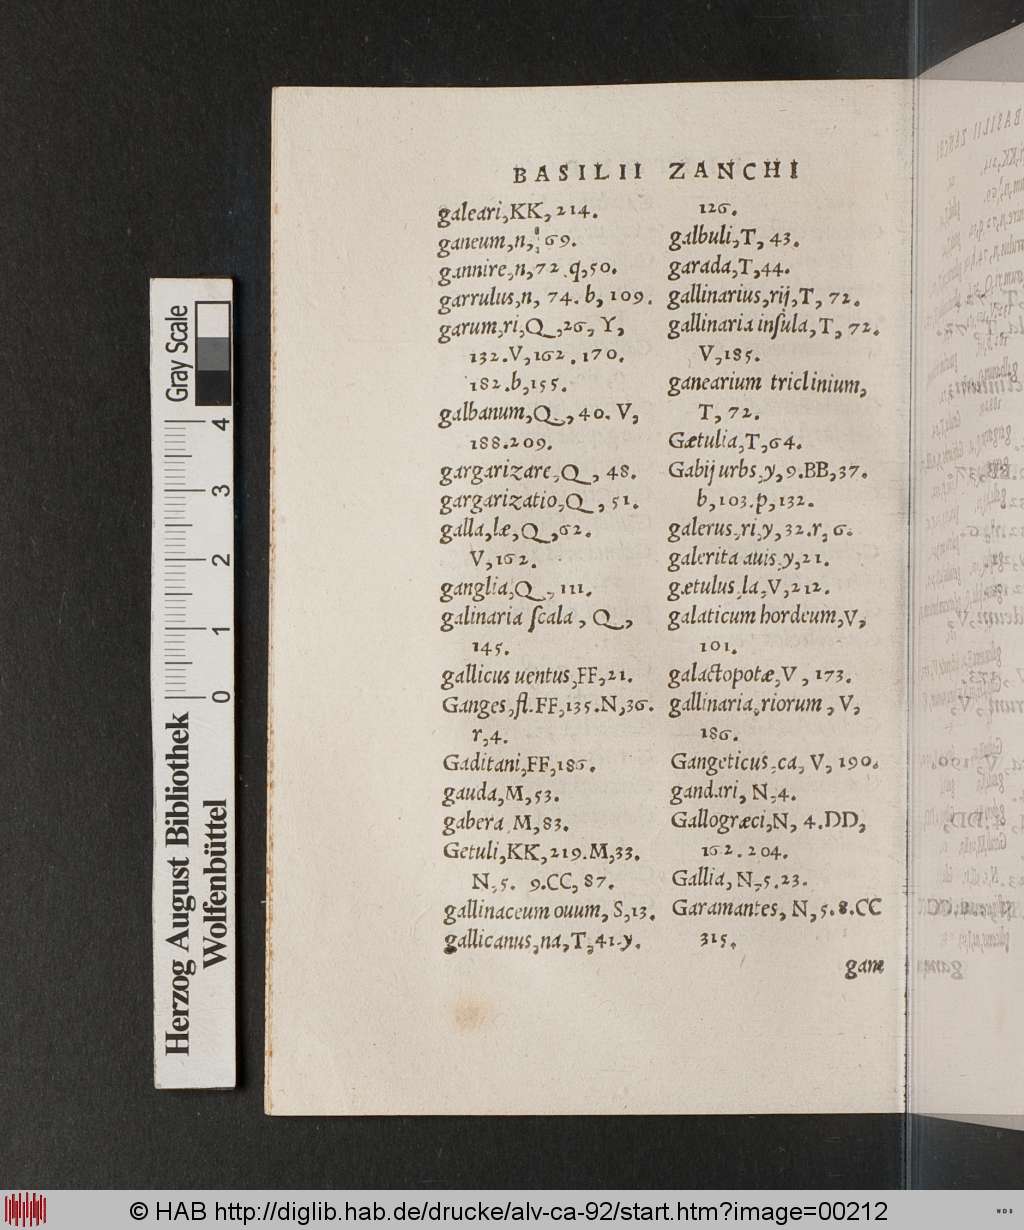 BASILII ZANCHI
galeari, KK, 214.
ganeum, n, 69.
gannire, n, 72. q, 50.
garrulus, n, 74. b, 109.
garum, ri, Q, 26, Y,
132. V, 162. 170.
182. b, 155.
galbanum, Q, 40. V,
188. 209.
gargarizare, Q, 48.
gargarizatio, Q, 51.
galla, læ, Q, 62.
V, 162.
ganglia, Q, 111.
galinaria ſcala, Q,
145.
gallicus uentus, FF, 21.
Ganges, fl. FF, 135. N, 36.
r, 4.
Gaditani, FF, 186.
gauda, M, 53.
gabera M, 83.
Getuli, KK, 219. M, 33.
N, 5. 9. CC, 87.
gallinaceum ouum, S, 13.
gallicanus, na, T, 41. y.
126.
galbuli, T, 43.
garada, T, 44.
gallinarius, rij, T, 72.
gallinaria inſula, T, 72.
V, 185.
ganearium triclinium,
T, 72.
Gætulia, T, 64.
Gabij urbs, y, 9. BB, 37.
b, 103. p, 132.
galerus, ri, y, 32. r, 6.
galerita auis, y, 21.
gætulus, la, V, 212.
galaticum hordeum, V,
101.
galactopotæ, V, 173.
gallinaria, riorum, V,
186.
Gangeticus, ca, V, 190.
gandari, N, 4.
Gallogræci, N, 4. DD,
162. 204.
Gallia, N, 5. 23.
Garamantes, N, 5. 8. CC
315.
gam
Gray Scale
4 3 2 1 0
Herzog August Bibliothek
Wolfenbüttel
© HAB http://diglib.hab.de/drucke/alv-ca-92/start.htm?image=00212